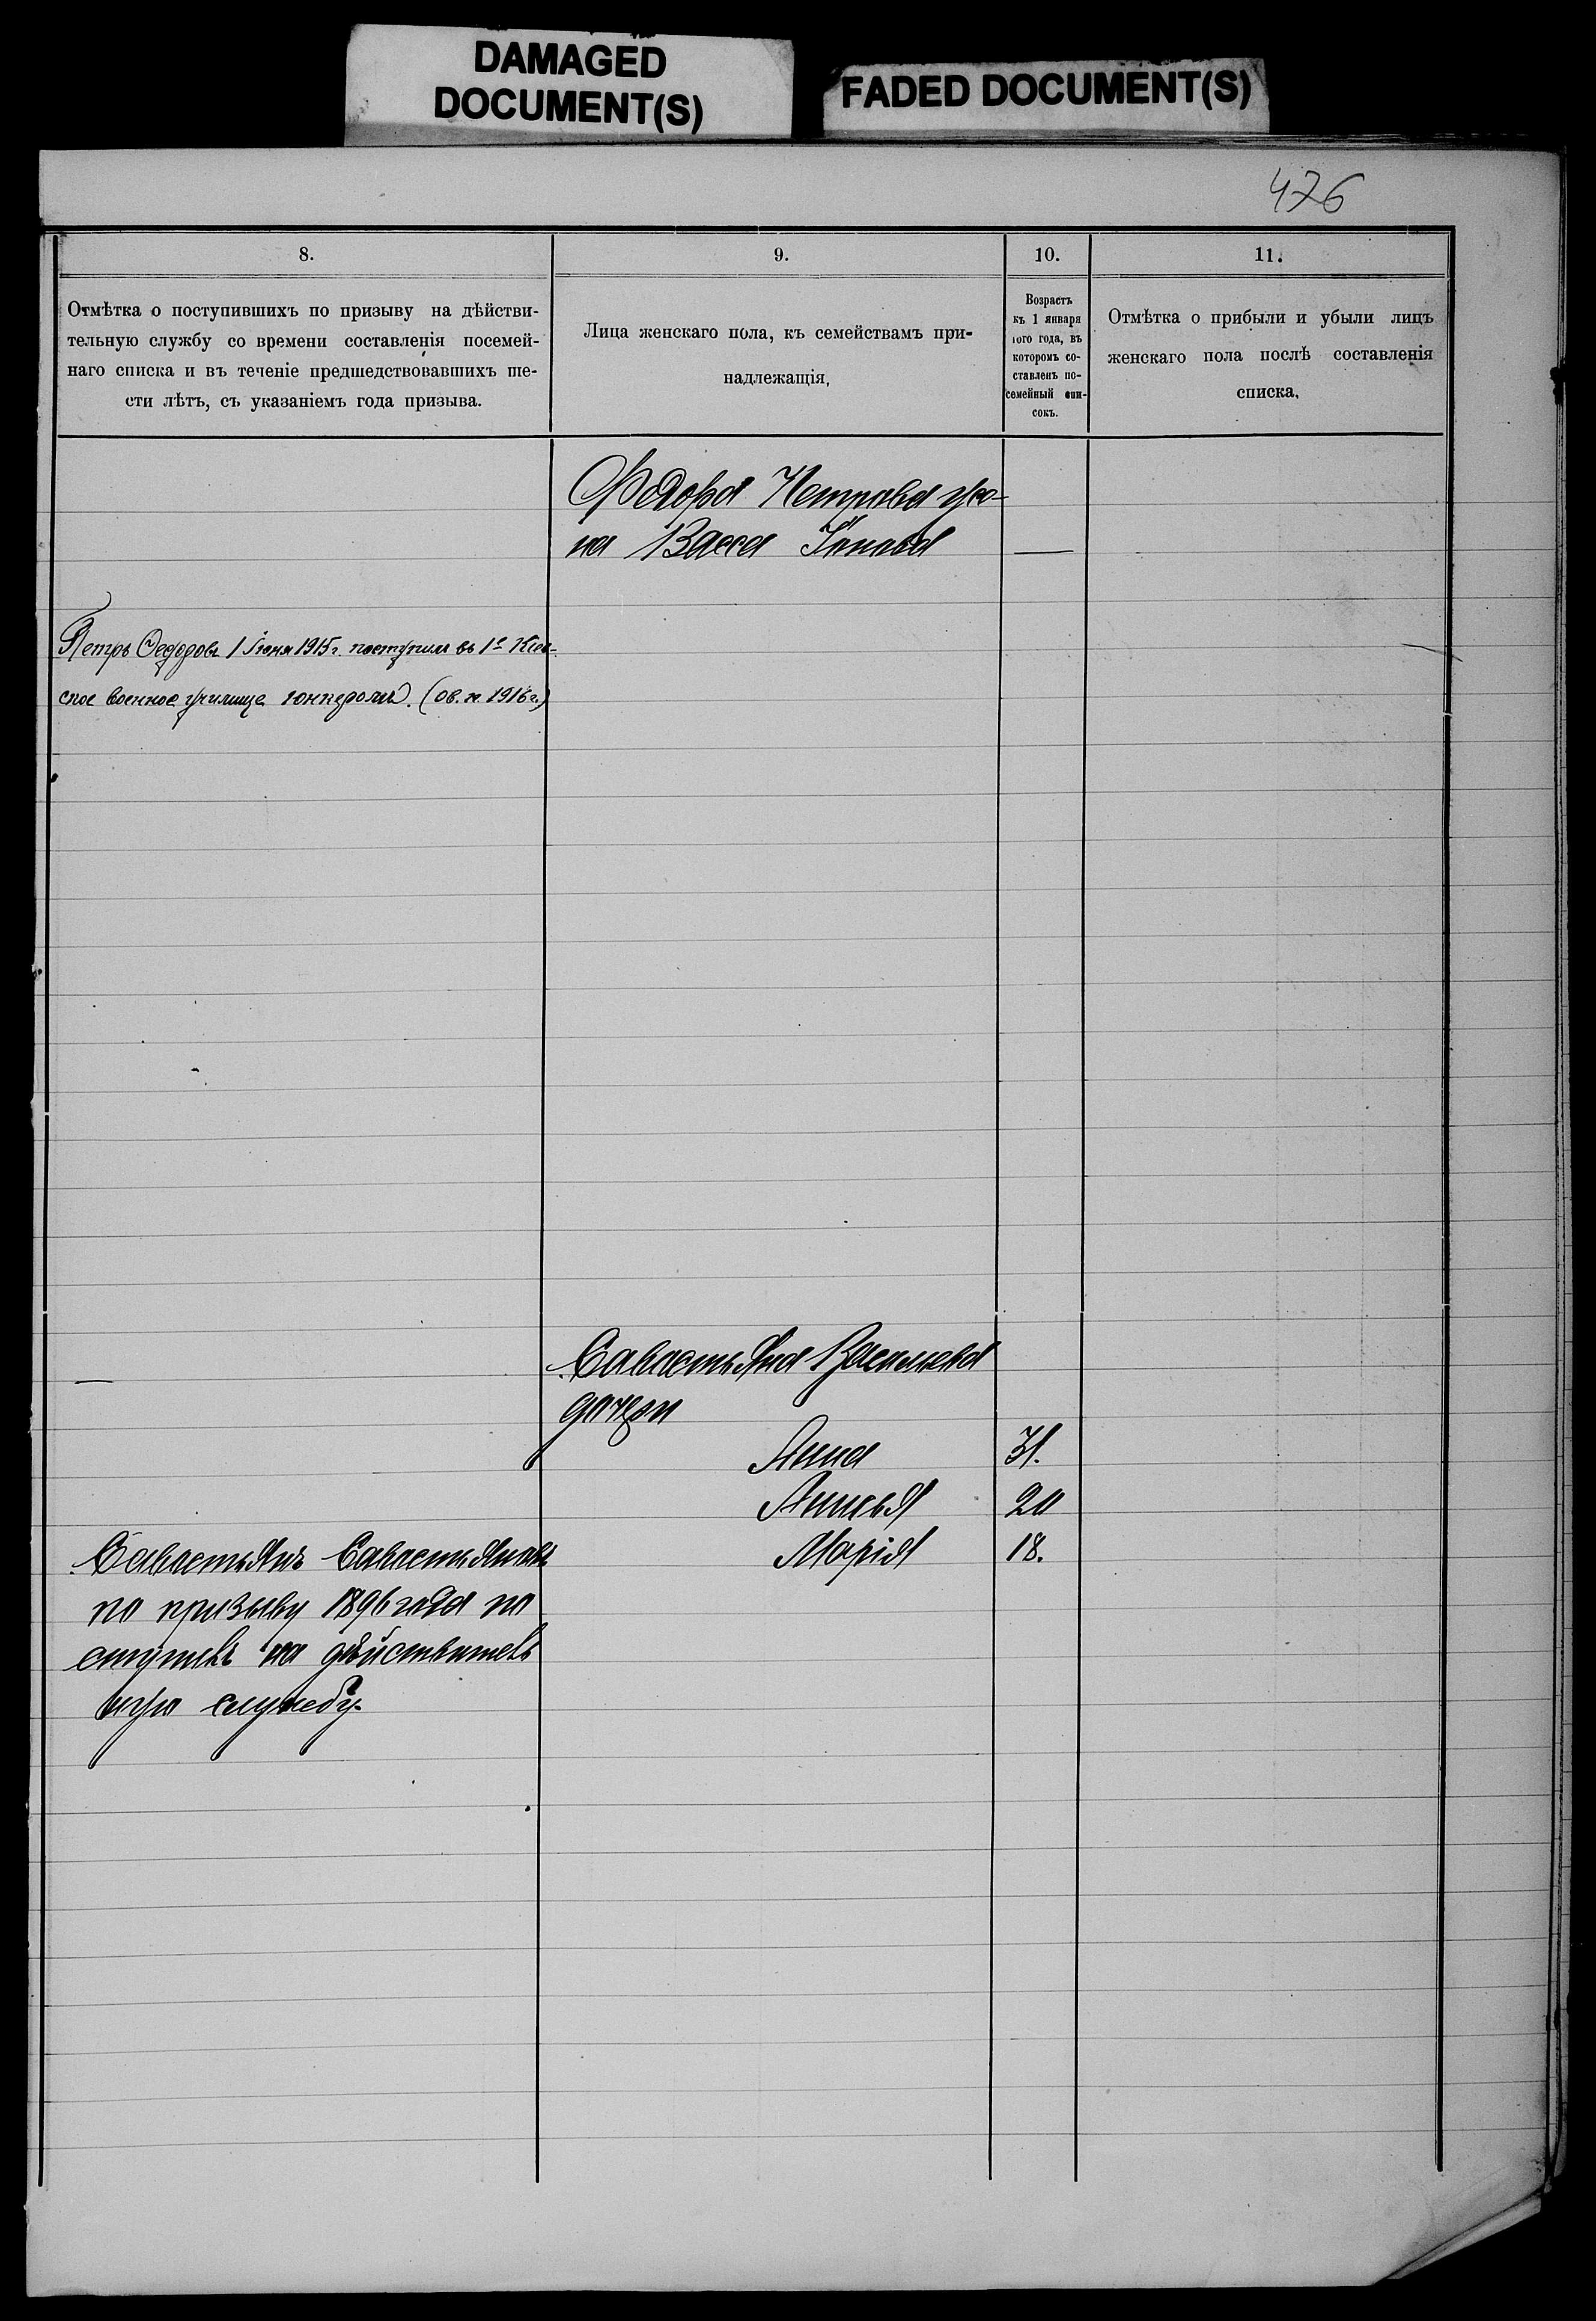 DAMAGED
DOCUMENT(S)
FADED DOCUMENT(S)
476
8.
9.
10.
11.
Отмѣтка о поступившихъ по призыву на дѣйстви-
тельную службу со времени составленія посемей-
наго списка и въ теченіе предшедствовавшихъ ше-
сти лѣтъ, съ указаніемъ года призыва.
Лица женскаго пола, къ семействамъ при-
надлежащія,
Возрастъ
къ 1 января
того года, въ
которомъ со-
ставленъ по-
семейный спи-
сокъ.
Отмѣтка о прибыли и убыли лицъ
женскаго пола послѣ составленія
списка,
Федора Петрова же-
на Васса —
Петръ Федоровъ 1 Іюня 1915 г. поступилъ въ 1е Кіев-
ское военное училище юнкеромъ. (1916 г.)
—
Савастьяна Васильева
дочери
Анна 31.
Аннсья 20
Марія 18.
Савастьянъ Савастьяновъ
по призыву 1896 года по
ступилъ на дѣйствитель
ную службу.